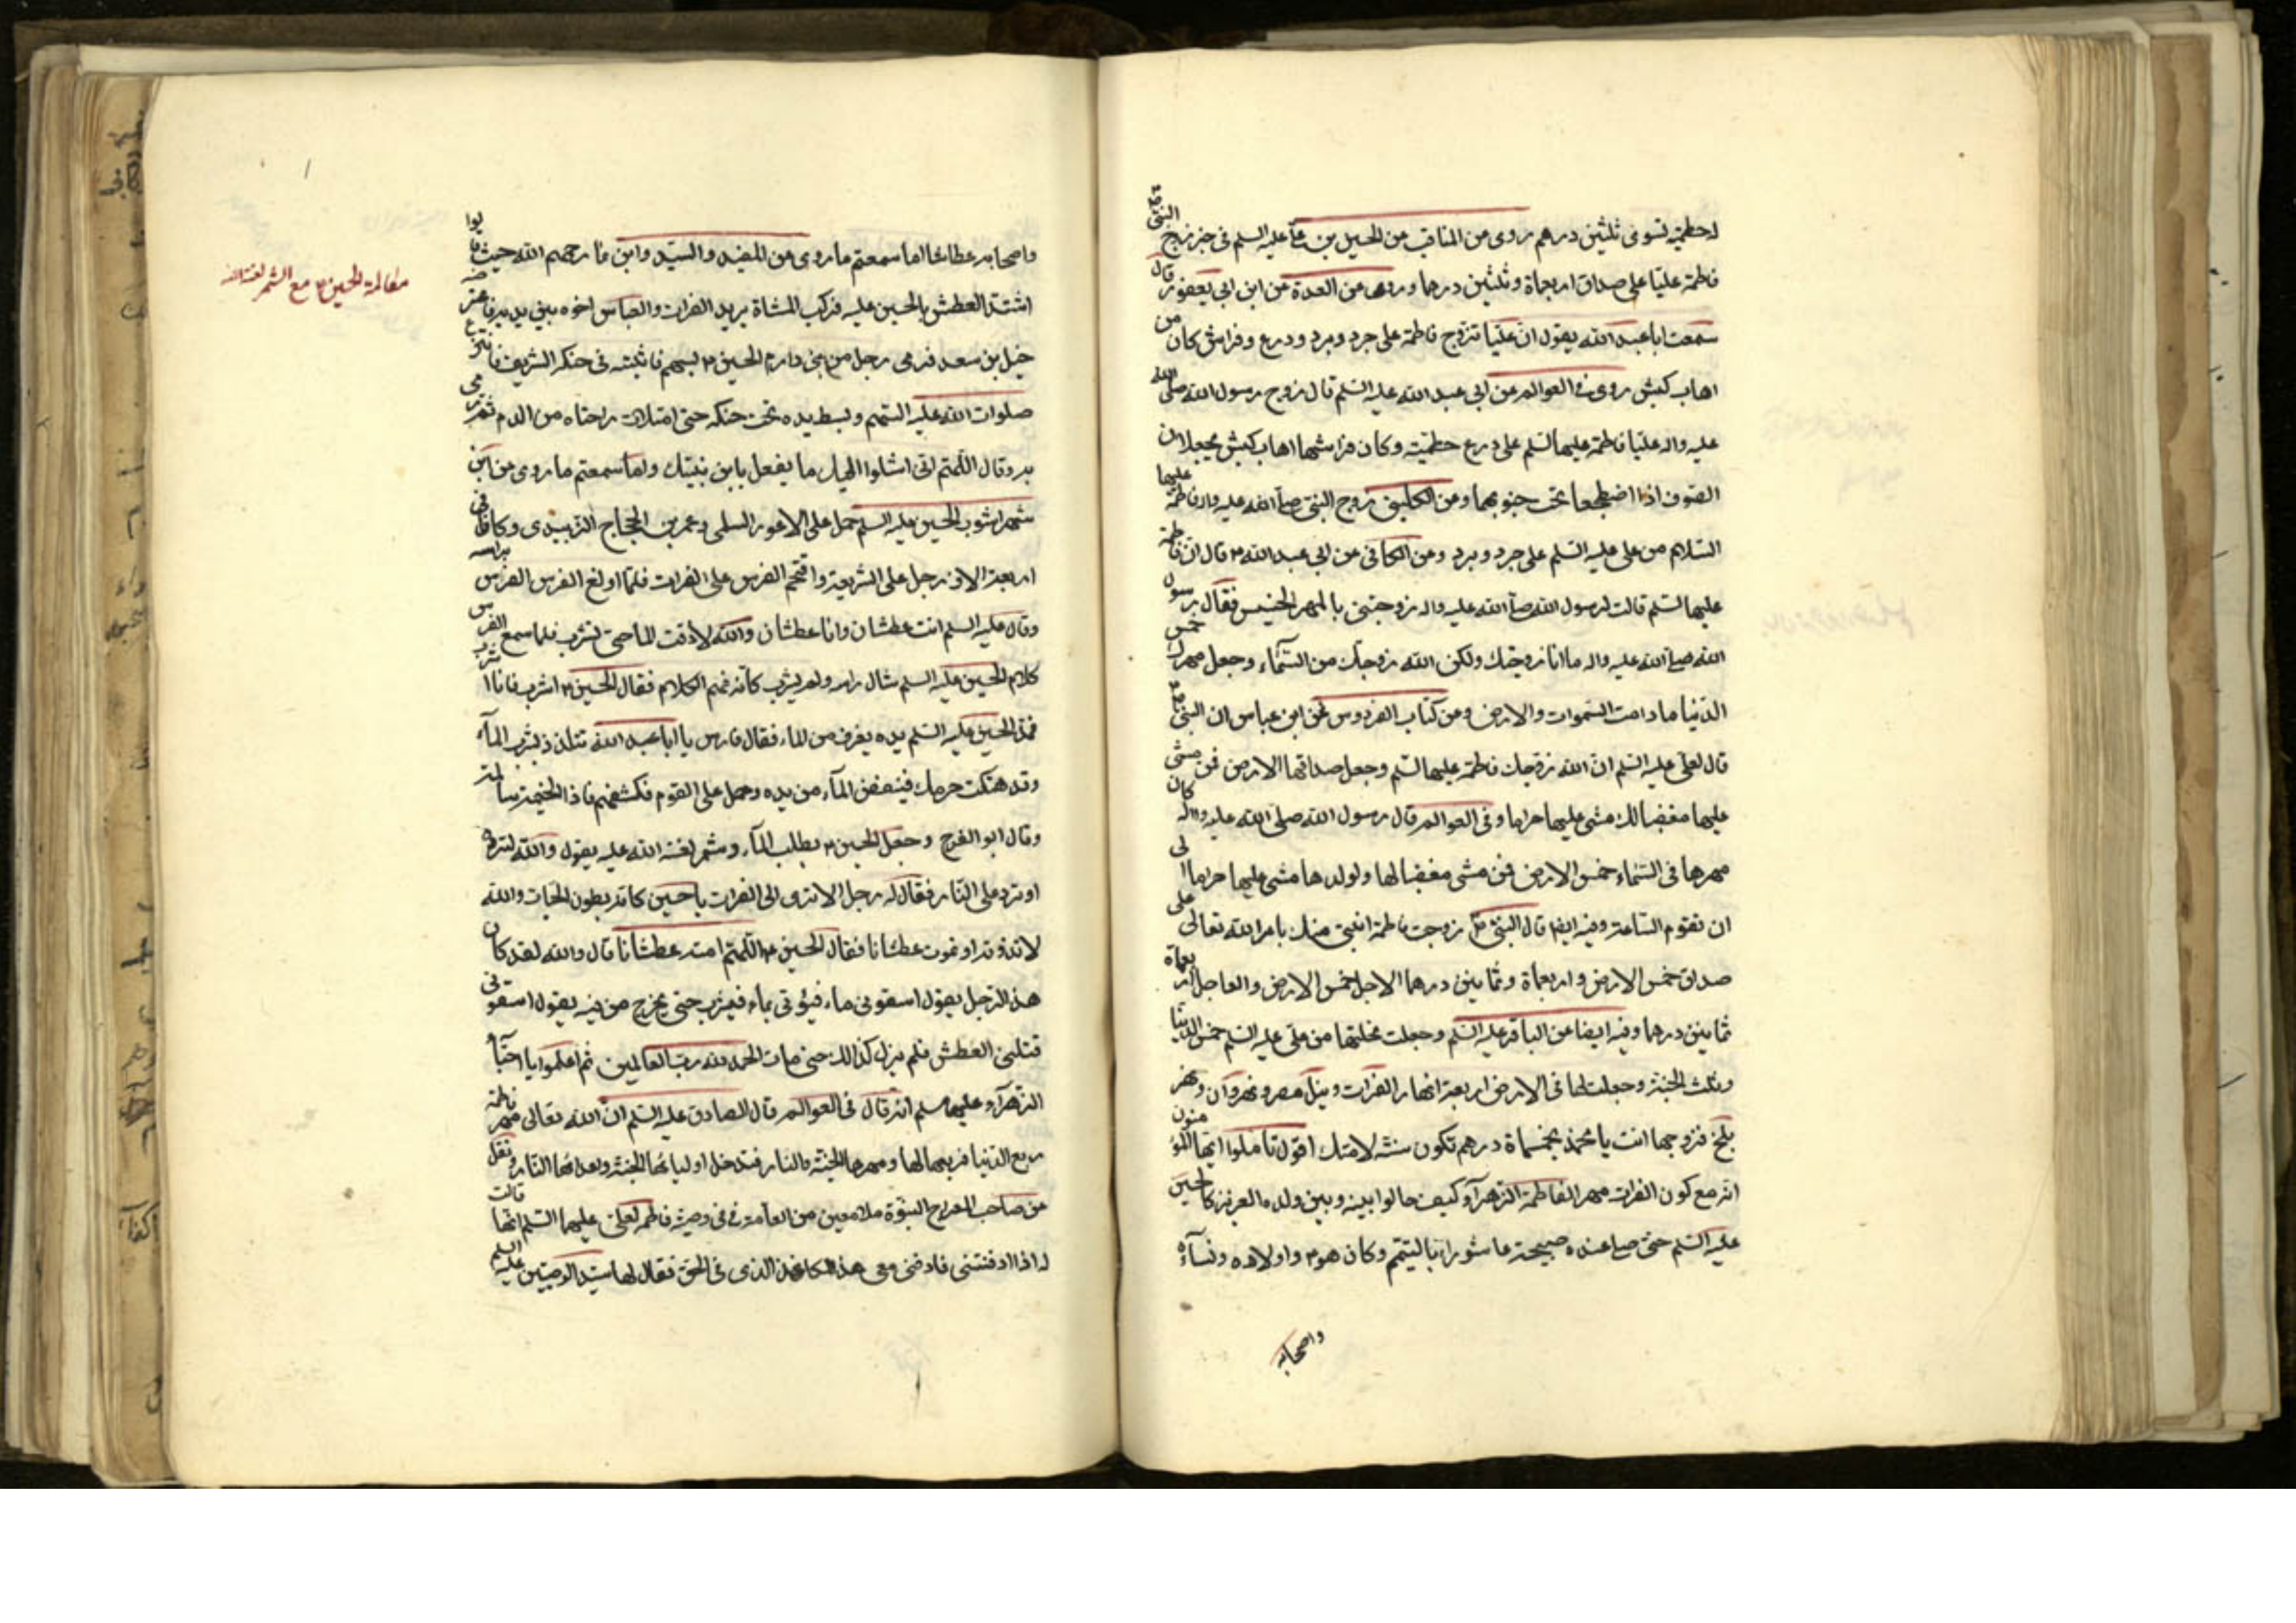 لحطمية تسوى ثلثين درهم روى من المناقب من الحسين بن علي عليه السلم في خبر زوج النبي ص
فاطمة عليا على صداق اربعمأة وثلثين درهما وروى من العدة عن ابن ابي يعفور قال
سمعت ابا عبد الله يقول ان عليا تزوج فاطمة على جرد وبرد ودرع وفراش كان من
اهاب كبش روى في العوالم عن ابي عبد الله عليه السلم قال زوج رسول الله صلى الله
عليه واله عليا فاطمة عليهما السلم على درع حطمية وكان فراشهما اهاب كبش يجعلان
الصوف اذا اضطجعا تحت جنوبهما ومن الكليني زوج النبي صلى الله عليه واله فاطمة عليها
السلام من علي عليه السلم على جرد وبرد ومن الكافي عن ابي عبد الله ع قال ان فاطمة
عليها السلم قالت لرسول الله صلى الله عليه واله زوجتني بالمهر الخسيس فقال رسول
الله صلى الله عليه واله ما انا زوجتك ولكن الله زوجك من السماء وجعل مهرك خمس
الدنيا ما دامت السموات والارض ومن كتاب الفردوس عن ابن عباس ان النبي ص
قال لعلي عليه السلم ان الله زوجك فاطمة عليها السلم وجعل صداقها الارض فمن مشى
عليها مغضبا لك مشى عليها حراما وفي العوالم قال رسول الله صلى الله عليه واله كان
مهرها في السماء خمس الارض فمن مشى مغضبا لها ولولدها مشى عليها حراما الى
ان تقوم الساعة وفيه ايضا قال النبي ص زوجت فاطمة ابنتي منك بامر الله تعالى على
صداق خمس الارض واربعمأة وثمانين درهما الاجل خمس الارض والعاجل اربعمأة
ثمانين درهما وفيه ايضا عن الباقر عليه السلم وجعلت نحلتها من علي عليه السلم خمس الدنيا
وثلث الجنة وجعلت لها في الارض اربعة انهار الفرات ونيل مصر ونهروان ونهر
بلخ فزوجها انت يا محمد بخمسمأة درهم تكون سنة لامتك اقول تاملوا ايها المؤمنون
انه مع كون الفرات مهر الفاطمة الزهرآء كيف حالوا بينه وبين ولده العزيز كالحسين
عليه السلم حتى صلى عنده صبيحة عاشورا بالتيمم وكان هو ع واولاده ونسآء
واصحابه
واصحابه عطاشا اما سمعتم ما روى من المفيد والسيد وابن نما رحمهم الله حيث قالوا
اشتد العطش بالحسين عليه فركب المسناة يريد الفرات والعباس اخوه بين يديه فاعترضه
خيل بن سعد فرمى رجل من بني دارم الحسين ع بسهم فاثبته في حنكه الشريف فانتزع
صلوات الله عليه السهم وبسط يده تحت حنكه حتى امتلات راحتاه من الدم ثم رمى
به وقال اللهم اني اشكوا اليك ما يفعل بابن بنت نبيك واما سمعتم ما روى من ابن
شهراشوب الحسين عليه السلم حمل على الاعور السلمى وعمر بن الحجاج الزبيدى وكانا في
اربعة الاف رجل على الشريعة واقحم الفرس على الفرات فلما اولغ الفرس براسه
وقال عليه السلم انت عطشان وانا عطشان والله لا ذقت الماء حتى تشرب فلما سمع الفرس
كلام الحسين عليه السلم شال راسه ولم يشرب كانه فهم الكلام فقال الحسين ع اشرب فانا اشرب
فمد الحسين عليه السلم يده يغرف من الماء فقال فارس يا ابا عبد الله تتلذذ بشرب المآء
وقد هتكت حرمك فنفض المآء من يده وحمل على القوم فكشفهم فاذا الخيمة سالمة
وقال ابو الفرج وجعل الحسين ع يطلب المآء وشمر لعنة الله عليه يقول والله لا ترده
او ترد على النار فقال له رجل الا ترى الى الفرات يا حسين كانه بطون الحيات والله
لا تذوقه او تموت عطشانا فقال الحسين ع اللهم امته عطشانا قال والله لقد كان
هذا الرجل يقول اسقوني ماء فيؤتى بماء فيشرب حتى يخرج من فيه يقول اسقوني
قتلني العطش فلم يزل كذالك حتى مات الحمد لله رب العالمين ثم اعلموا يا احبآء
الزهرآء عليها سلم انه قال في العوالم قال الصادق عليه السلم ان الله تعالى مهر فاطمة
ربع الدنيا فربعها لها ومهرها الجنة والنار فتدخل اوليائها الجنة واعدائها النار ونقل
عن صاحب المعراج النبوة ملا معين من العامة في وصية فاطمة لعلي عليهما السلم انها قالت
له اذا دفنتني فادفن معي هذا الكاغذ الذى في الحقة فقال لها سيد الوصيين عليه السلم
مقالمة الحسين ع مع الشمر لعنه الله